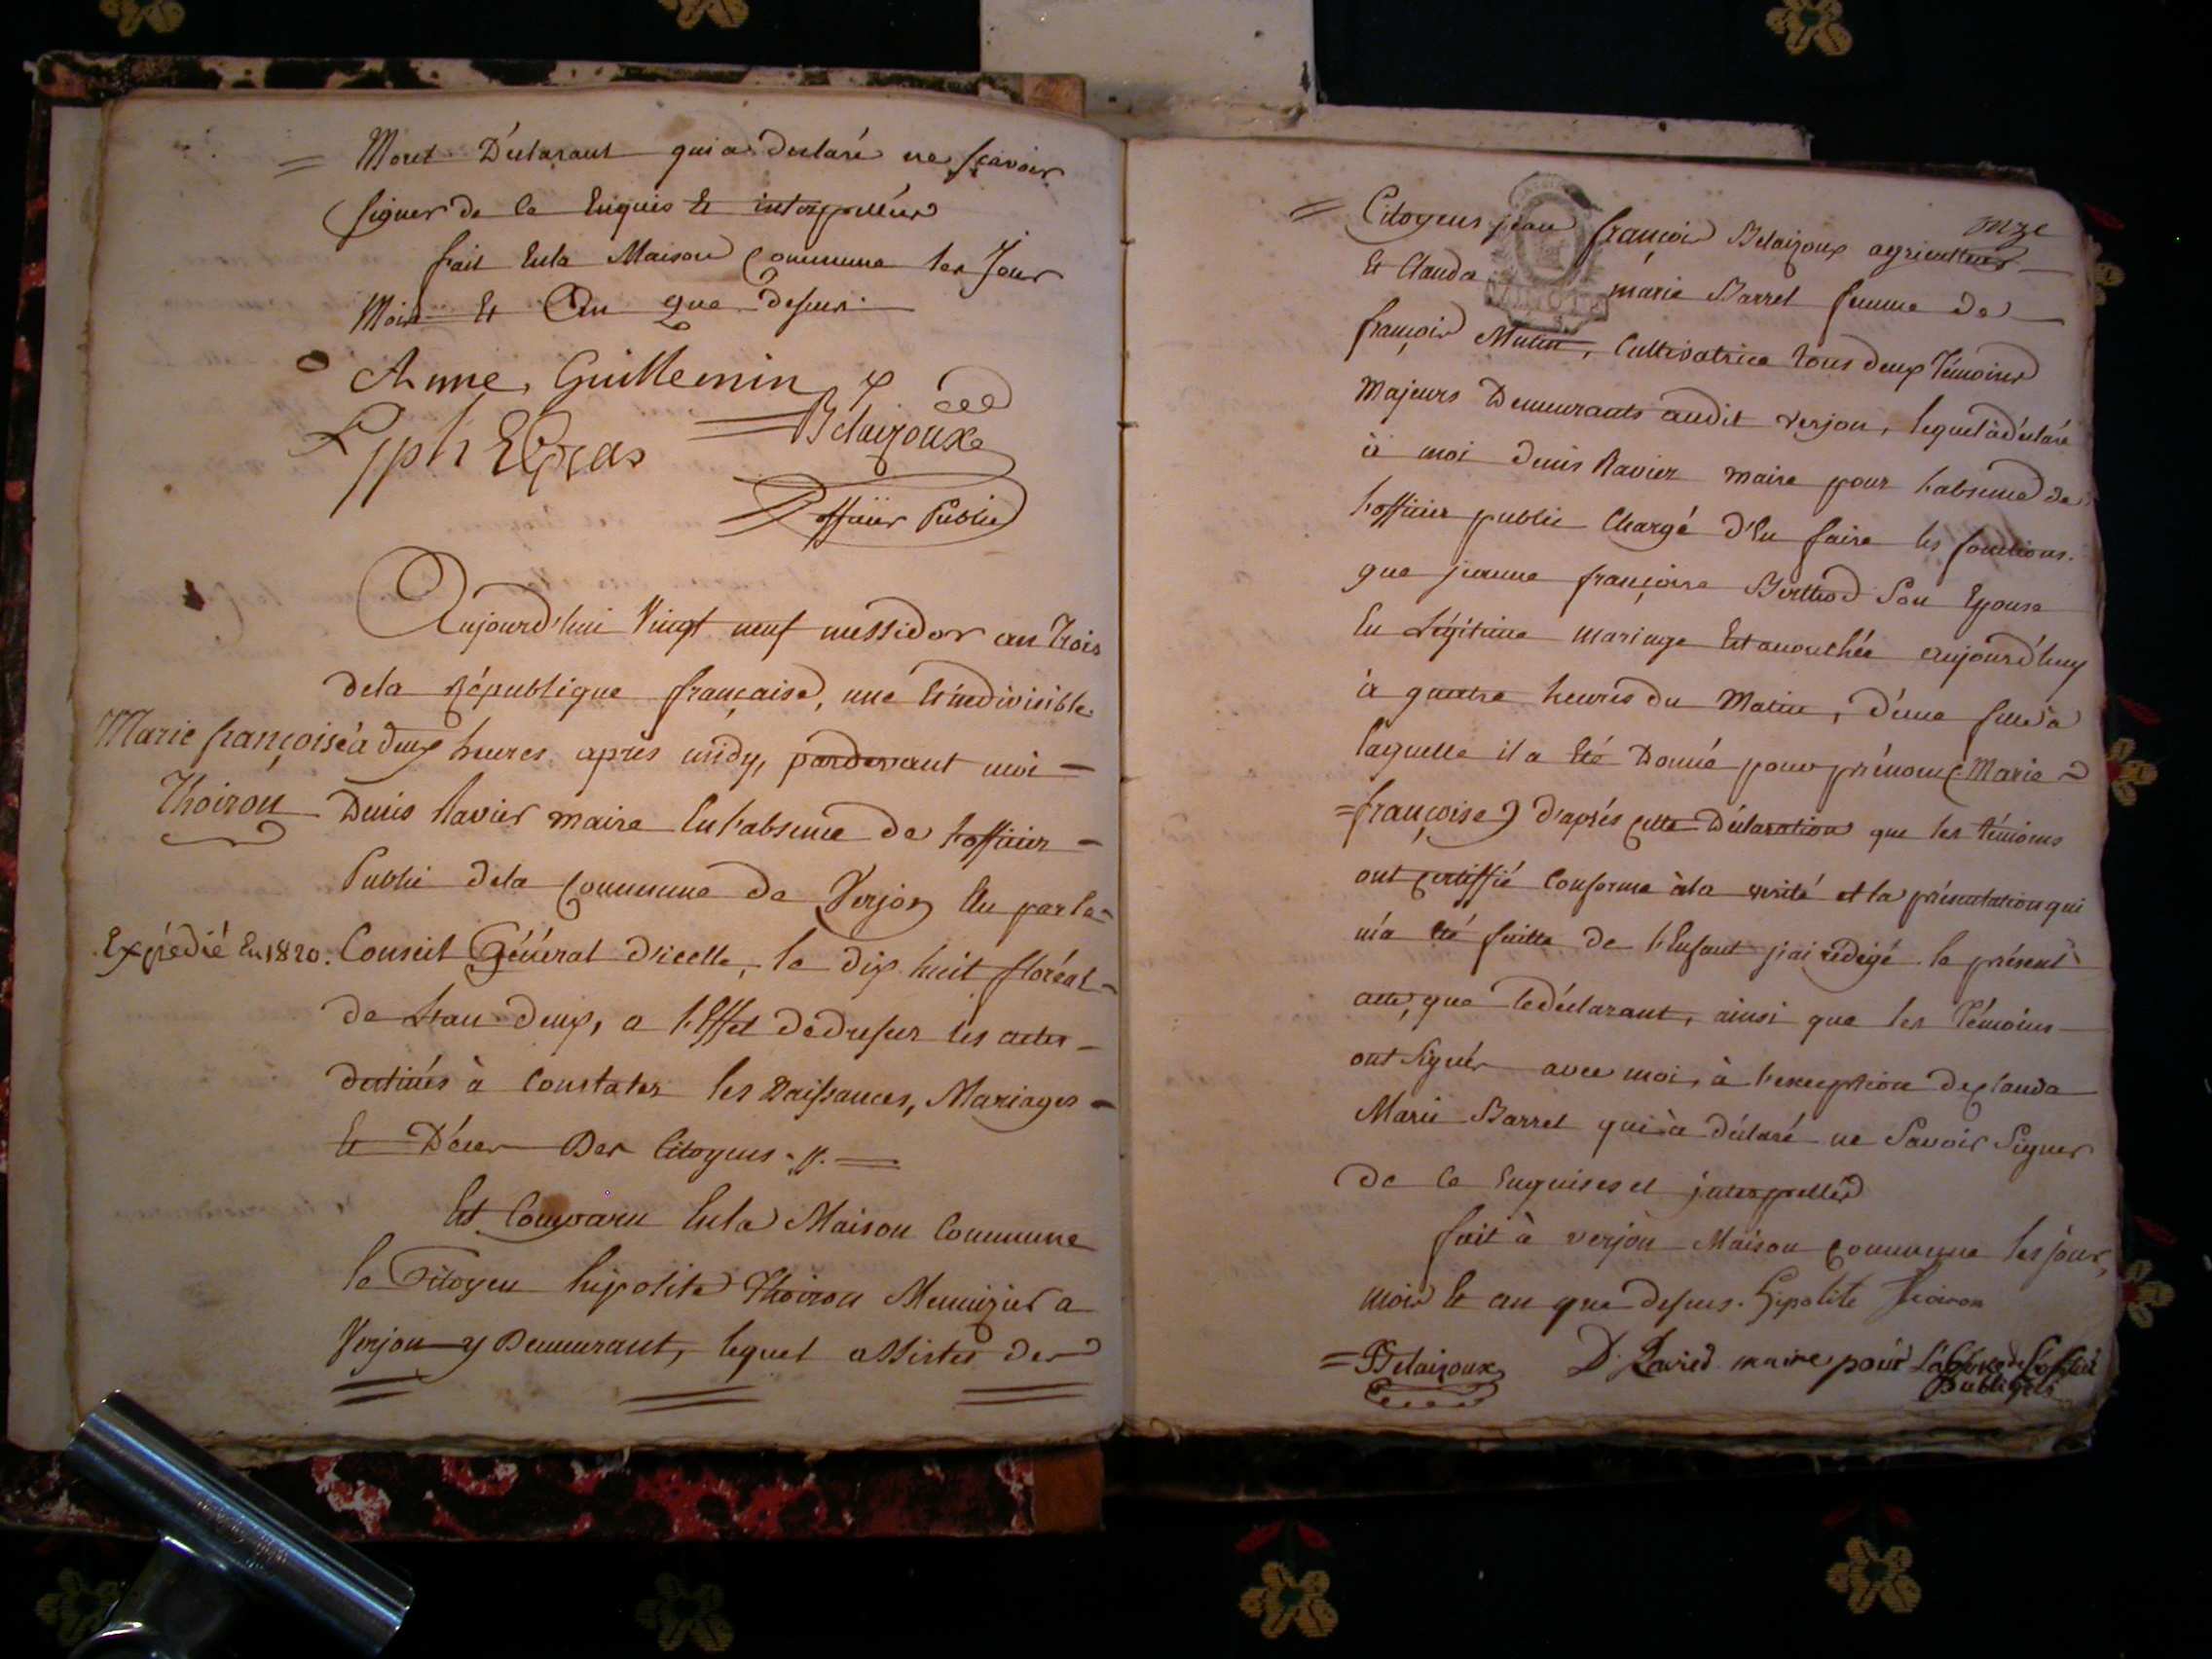 = Moret Déclarant qui a déclaré ne sçavoir
signer de ce Enquis Et interpellés
fait En la Maison Commune les Jour
Mois Et An que dessus.
Anne Guillemin
Jph El Gras
Belaizoux
officier Public
Aujourd'hui Vingt neuf messidor an trois
de la République française, une Et indivisible
Marie françoise
Thoiron
à deux heures après midy, pardevant moi
Denis Ravier maire En l'absence de l'officier
Public de la Commune de Verjon Elu par le
Expédié En 1820.
Conseil Général d'icelle, le dix huit floréal
de L'an deux, a l'Effet de dresser les actes
destinés à Constater les Naissances, Mariages
Et Décès Des Citoyens.
Est Comparu En la Maison Commune
le Citoyen hipolite Thoiron Meunizier a
Verjon y Demeurant, lequel assistés des
onze
= Citoyens jean françois Belaizoux agriculteur
Et Clauda marie Barret femme de
françois Mutin, Cultivatrice tous deux témoins
Majeurs Demeurants audit verjon, lequel à déclaré
à moi denis Ravier maire pour l'absence de
l'officier public Chargé d'En faire les fonctions.
que jeanne françoise Berthod Son Epouse
En Légitime mariage Est accouchée aujourd'huy
à quatre heures du Matin, d'une fille à
laquelle il a Eté Donné pour prénoms (Marie
= françoise) d'après cette Déclaration que les témoins
ont certiffié Conforme à la verité et la présentation qui
m'a été faitte de l'Enfant j'ai rédigé le présent
acte, que le déclarant, ainsi que les Témoins
ont Signés avec moi, à l'exception de Clauda
Marie Barret qui à déclaré ne Savoir Signer
de ce Enquises et interpellés
fait à verjon Maison commune les jour,
mois Et an que dessus. Hipolite Thoiron
= Belaizoux D. Ravier maire pour L'absence de L'officier
Public